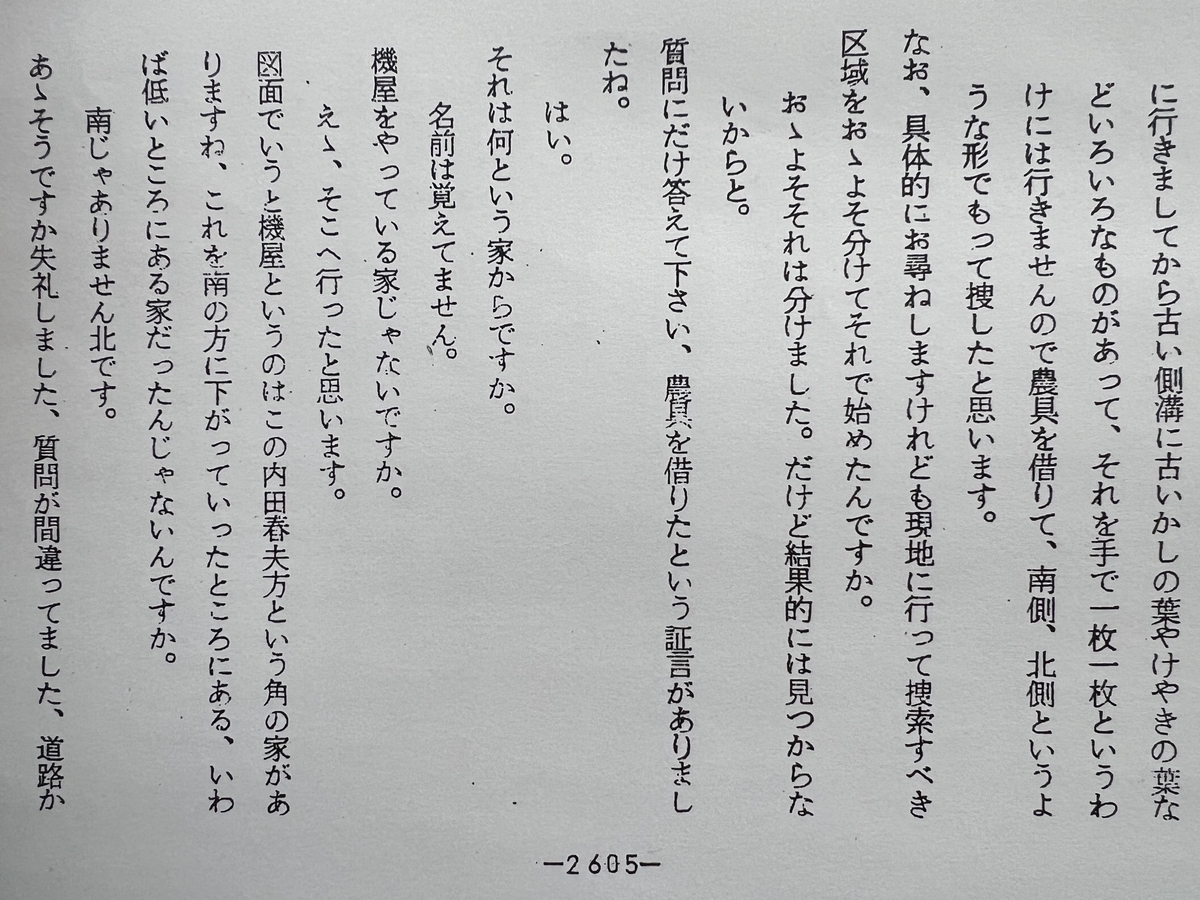 に行きましてから古い側溝に古いかしの葉やけやきの葉な
どいろいろなものがあって、それを手で一枚一枚というわ
けには行きませんので農具を借りて、南側、北側というよ
うな形でもって捜したと思います。
なお、具体的にお尋ねしますけれども現地に行って捜索すべき
区域をおゝよそ分けてそれで始めたんですか。
おゝよそそれは分けました。だけど結果的には見つからな
いからと。
質問にだけ答えて下さい、農具を借りたという証言がありまし
たね。
はい。
それは何という家からですか。
名前は覚えてません。
機屋をやっている家じゃないですか。
えゝ、そこへ行ったと思います。
図面でいうと機屋というのはこの内田春夫方という角の家があ
りますね、これを南の方に下がっていったところにある、いわ
ば低いところにある家だったんじゃないんですか。
南じゃありません北です。
あゝそうですか失礼しました、質問が間違ってました、道路か
—2605—